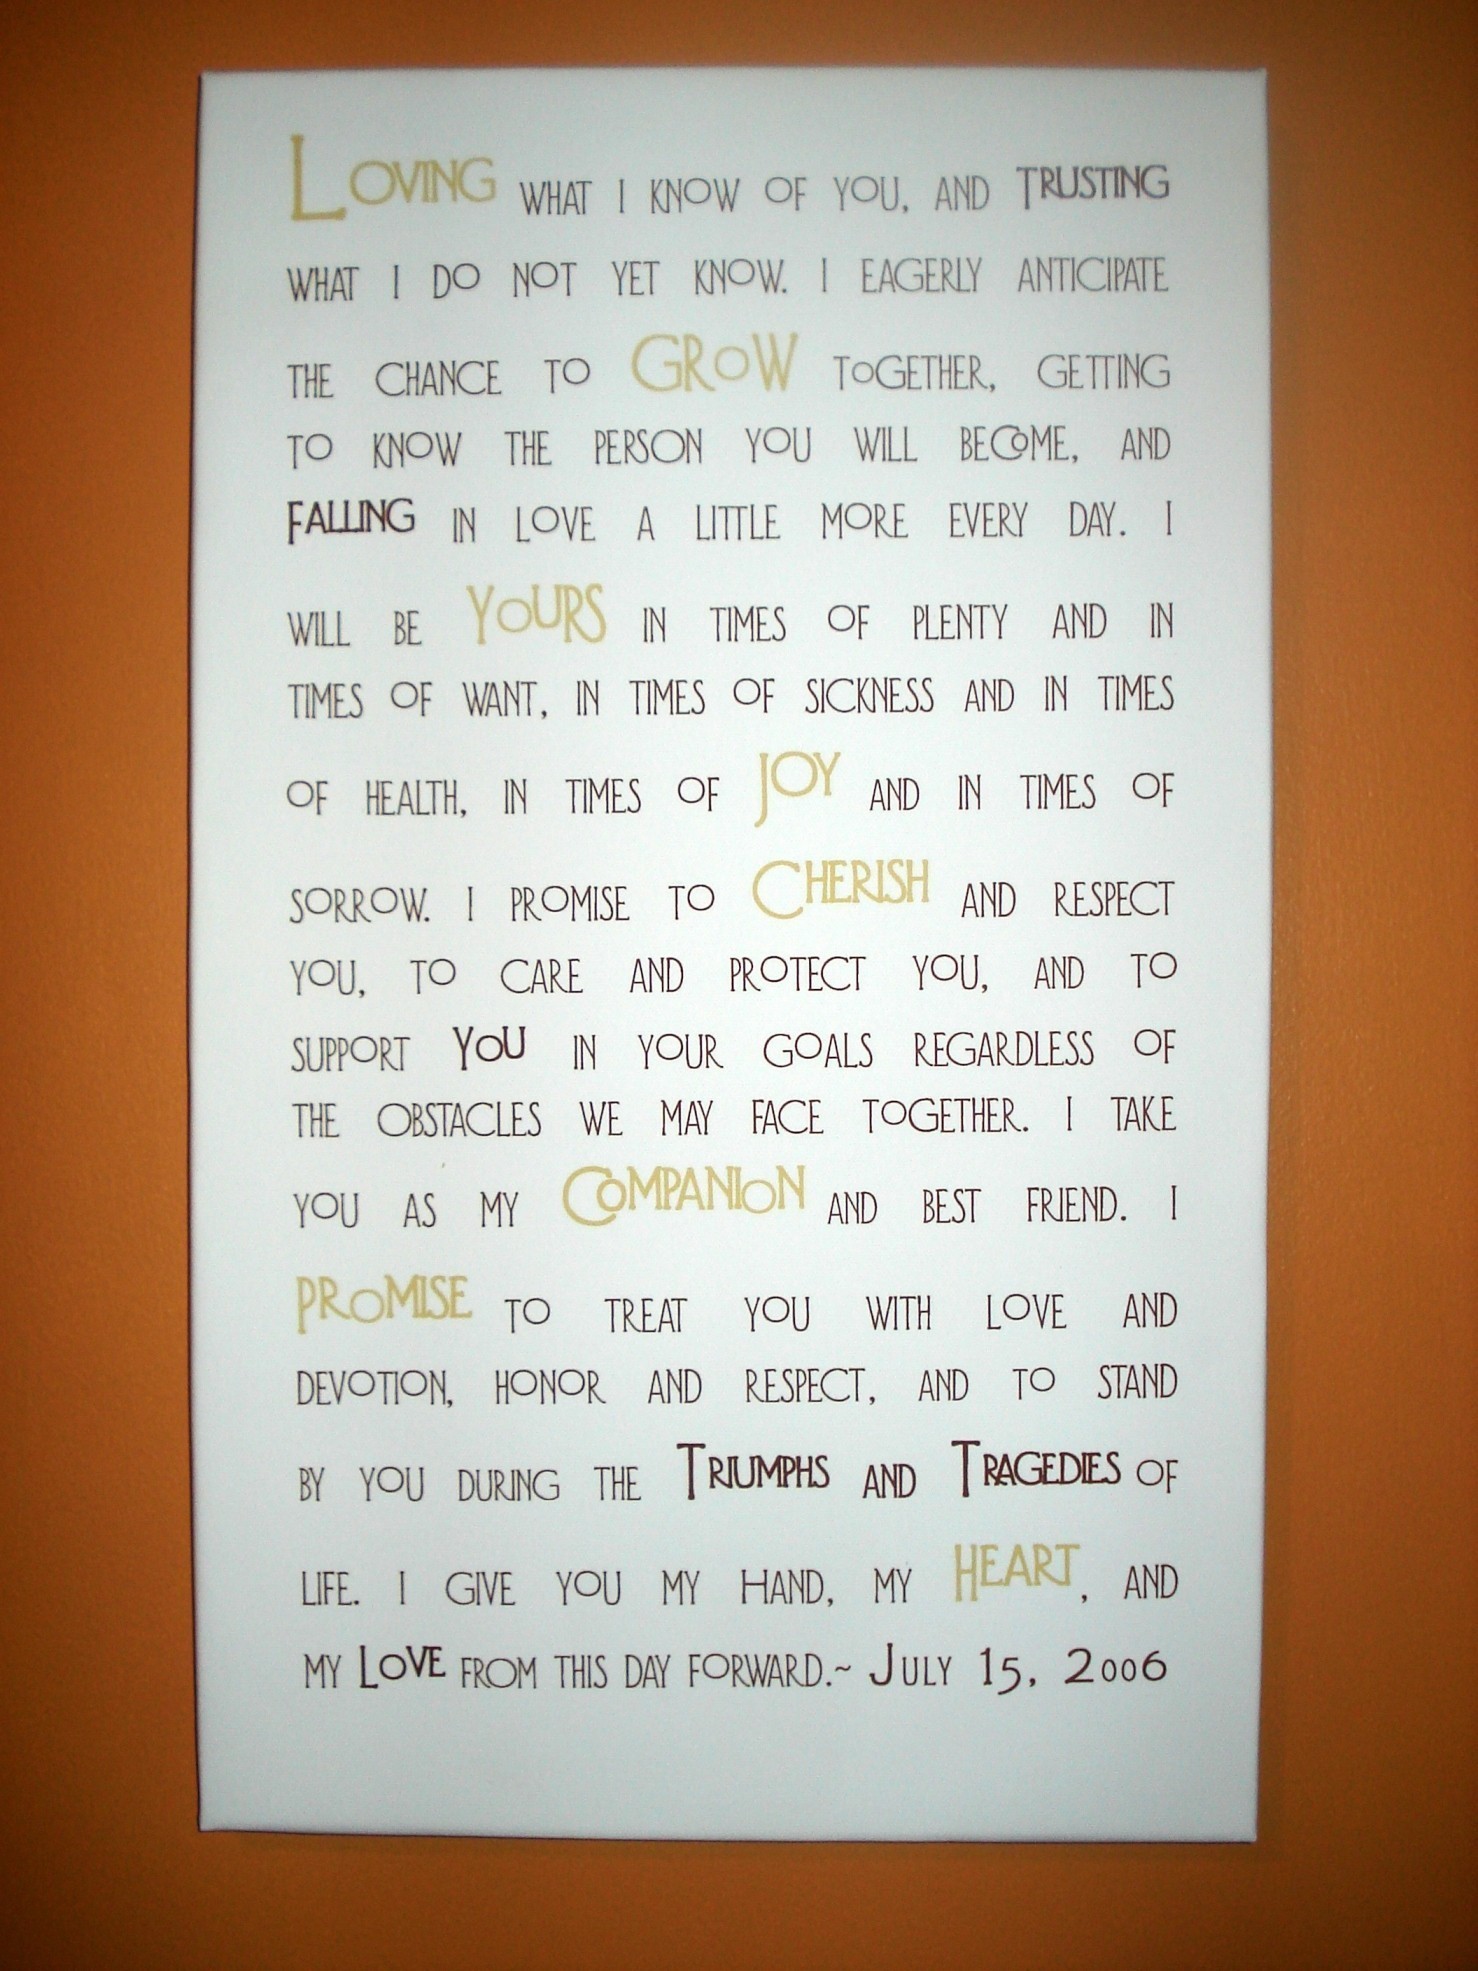 LOVING WHAT I KNOW OF YOU, AND TRUSTING
WHAT I DO NOT YET KNOW. I EAGERLY ANTICIPATE
THE CHANCE TO GROW TOGETHER, GETTING
TO KNOW THE PERSON YOU WILL BECOME, AND
FALLING IN LOVE A LITTLE MORE EVERY DAY. I
WILL BE YOURS IN TIMES OF PLENTY AND IN
TIMES OF WANT, IN TIMES OF SICKNESS AND IN TIMES
OF HEALTH, IN TIMES OF JOY AND IN TIMES OF
SORROW. I PROMISE TO CHERISH AND RESPECT
YOU, TO CARE AND PROTECT YOU, AND TO
SUPPORT YOU IN YOUR GOALS REGARDLESS OF
THE OBSTACLES WE MAY FACE TOGETHER. I TAKE
YOU AS MY COMPANION AND BEST FRIEND. I
PROMISE TO TREAT YOU WITH LOVE AND
DEVOTION, HONOR AND RESPECT, AND TO STAND
BY YOU DURING THE TRIUMPHS AND TRAGEDIES OF
LIFE. I GIVE YOU MY HAND, MY HEART, AND
MY LOVE FROM THIS DAY FORWARD.~ JULY 15, 2006